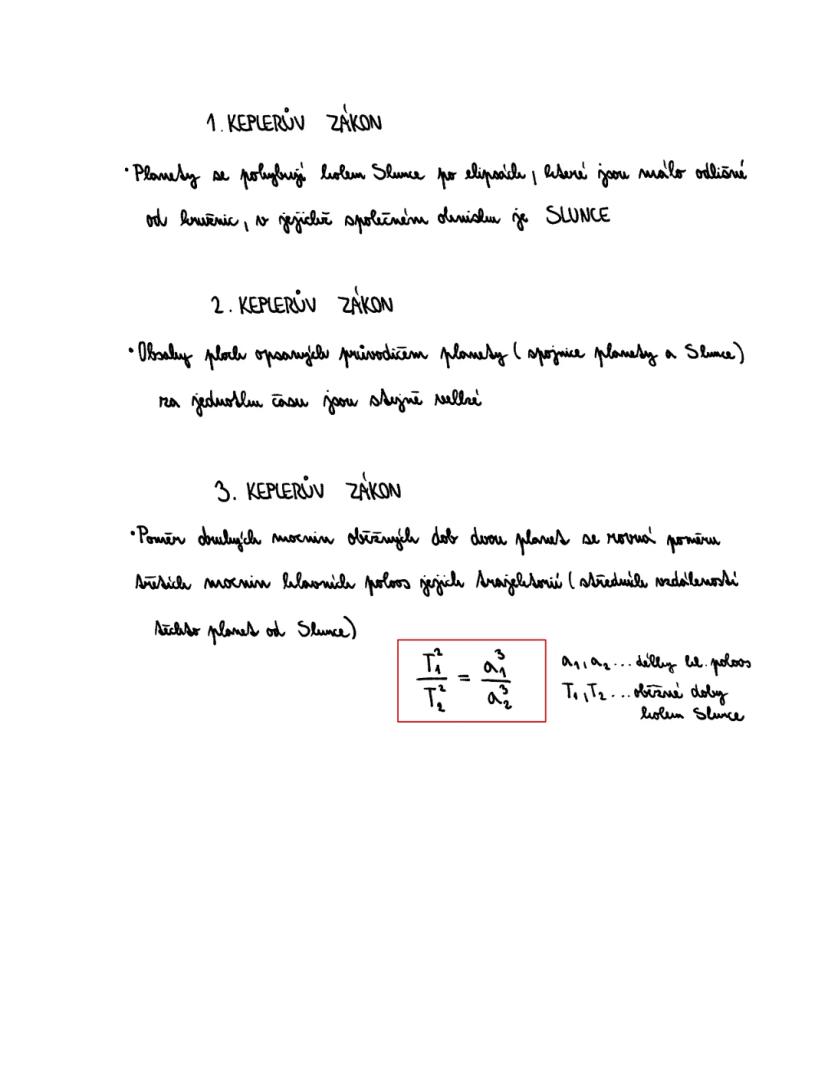 1. KEPLERŮV ZÁKON
• Planety se pohybují kolem Slunce po elipsách, které jsou málo odlišné
od kružnic, v jejichž společném ohnisku je SLUNCE
2. KEPLERŮV ZÁKON
• Obsahy ploch opsaných průvodičem planety (spojnice planety a Slunce)
za jednotku času jsou stejně velké
3. KEPLERŮV ZÁKON
• Poměr druhých mocnin oběžných dob dvou planet se rovná poměru
třetích mocnin hlavních poloos jejich trajektorií (středních vzdáleností
těchto planet od Slunce)
T₁²/T₂² = a₁³/a₂³
a₁, a₂ ... délky hl. poloos
T₁, T₂ ... oběžné doby
kolem Slunce